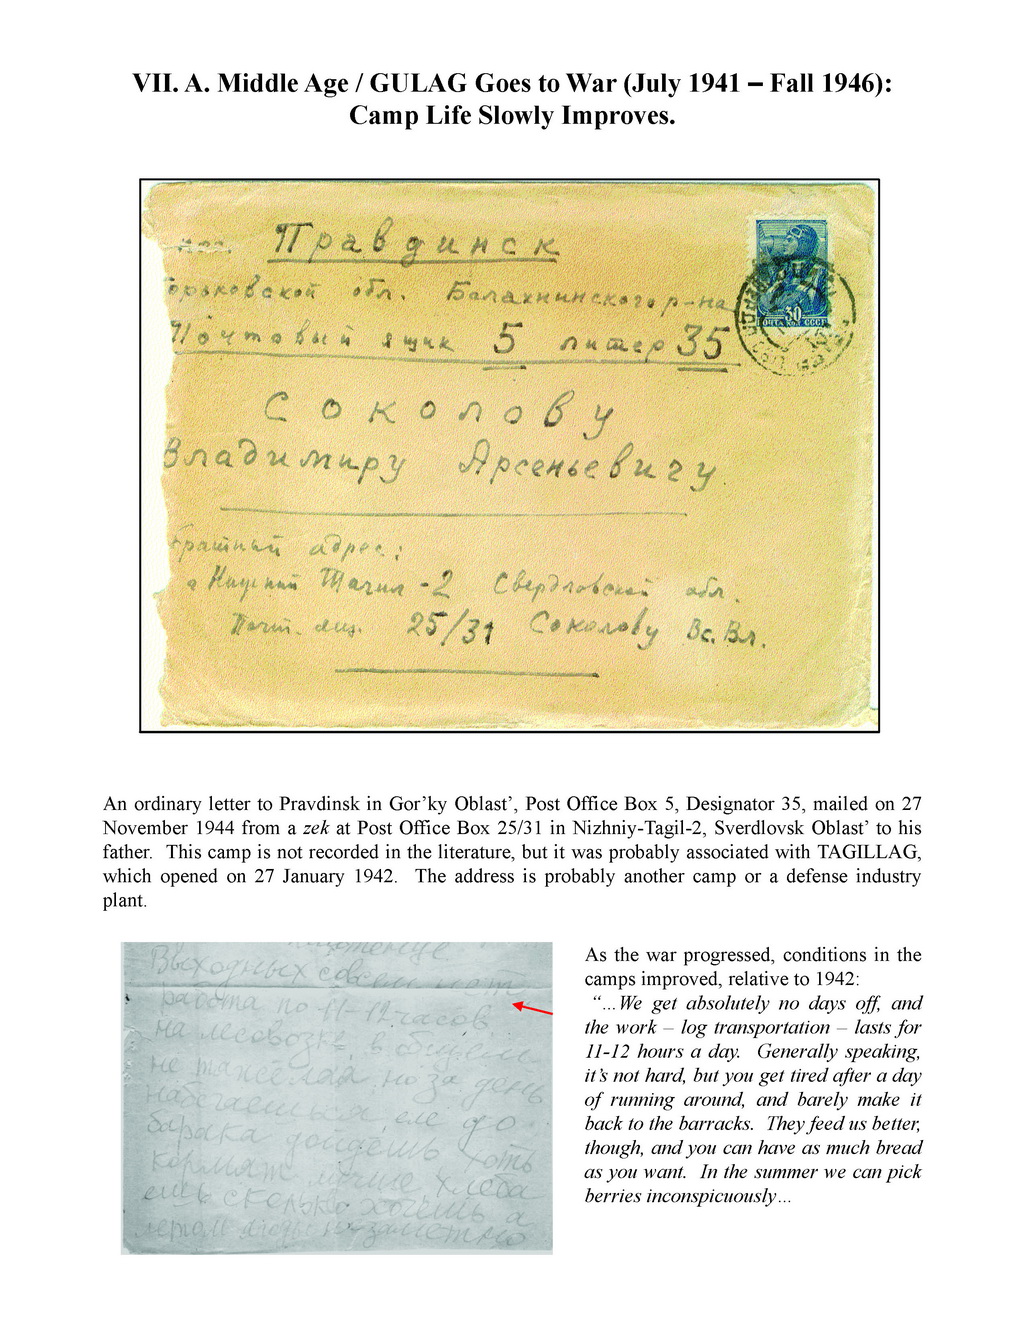 VII. A. Middle Age / GULAG Goes to War (July 1941 – Fall 1946):
Camp Life Slowly Improves.
Правдинск
Горьковской обл. Балахнинского р-на
Почтовый ящик 5 литер 35
ПОЧТА 30 КОП. СССР
Соколову
Владимиру Арсеньевичу.
Обратный адрес:
г Нижний Тагил-2 Свердловской обл.
Почт. ящ. 25/31 Соколову Вс. Вл.
An ordinary letter to Pravdinsk in Gor'ky Oblast', Post Office Box 5, Designator 35, mailed on 27
November 1944 from a zek at Post Office Box 25/31 in Nizhniy-Tagil-2, Sverdlovsk Oblast' to his
father. This camp is not recorded in the literature, but it was probably associated with TAGILLAG,
which opened on 27 January 1942. The address is probably another camp or a defense industry
plant.
Выходных совсем нет
работа по 11-12 часов
на лесовозке, в общем
не тяжёлая, но за день
набегаешься, еле до
барака дойдёшь. Хоть
кормят лучше хлеба
ешь сколько хочешь а
летом ягоды незаметно
As the war progressed, conditions in the
camps improved, relative to 1942:
"...We get absolutely no days off, and
the work – log transportation – lasts for
11-12 hours a day. Generally speaking,
it's not hard, but you get tired after a day
of running around, and barely make it
back to the barracks. They feed us better,
though, and you can have as much bread
as you want. In the summer we can pick
berries inconspicuously...